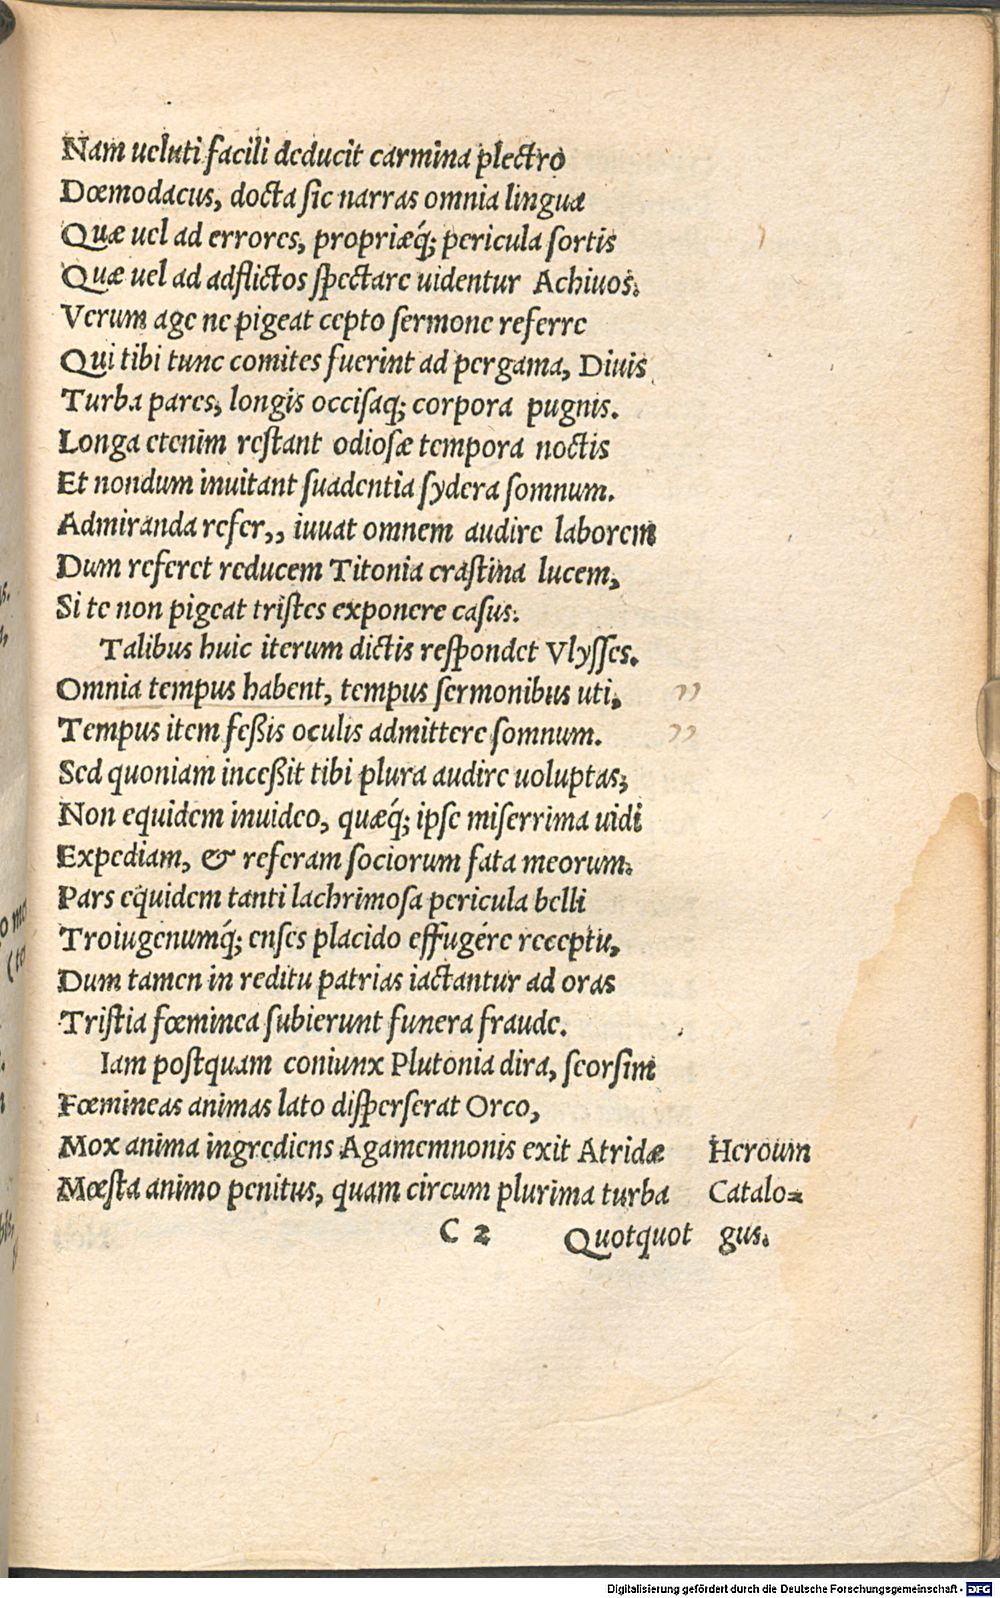 Nam ueluti facili deducit carmina plectro
Dœmodacus, docta ſic narras omnia lingua
Quæ uel ad errores, propriæq́; pericula ſortis
Quæ uel ad adflictos ſpectare uidentur Achiuos.
Verum age ne pigeat cepto ſermone referre
Qui tibi tunc comites fuerint ad pergama, Diuis
Turba pares, longis occiſaq; corpora pugnis.
Longa etenim reſtant odioſæ tempora noctis
Et nondum inuitant ſuadentia ſydera ſomnum.
Admiranda refer,, iuuat omnem audire laborem
Dum referet reducem Titonia craſtina lucem,
Si te non pigeat triſtes exponere caſus.
Talibus huic iterum dictis reſpondet Vlyſſes.
Omnia tempus habent, tempus ſermonibus uti, ””
Tempus item feßis oculis admittere ſomnum. ””
Sed quoniam inceßit tibi plura audire uoluptas,
Non equidem inuideo, quæq́; ipſe miſerrima uidi
Expediam, & referam ſociorum fata meorum.
Pars equidem tanti lachrimoſa pericula belli
Troiugenumq́; enſes placido effugére receptu,
Dum tamen in reditu patrias iactantur ad oras
Triſtia fœminea ſubierunt funera fraude.
Iam poſtquam coniunx Plutonia dira, ſeorſim
Fœmineas animas lato diſperſerat Orco,
Mox anima ingrediens Agamemnonis exit Atridæ Heroum
Mœſta animo penitus, quam circum plurima turba Catalo-
C 2 Quotquot gus.
Digitalisierung gefördert durch die Deutsche Forschungsgemeinschaft - DFG